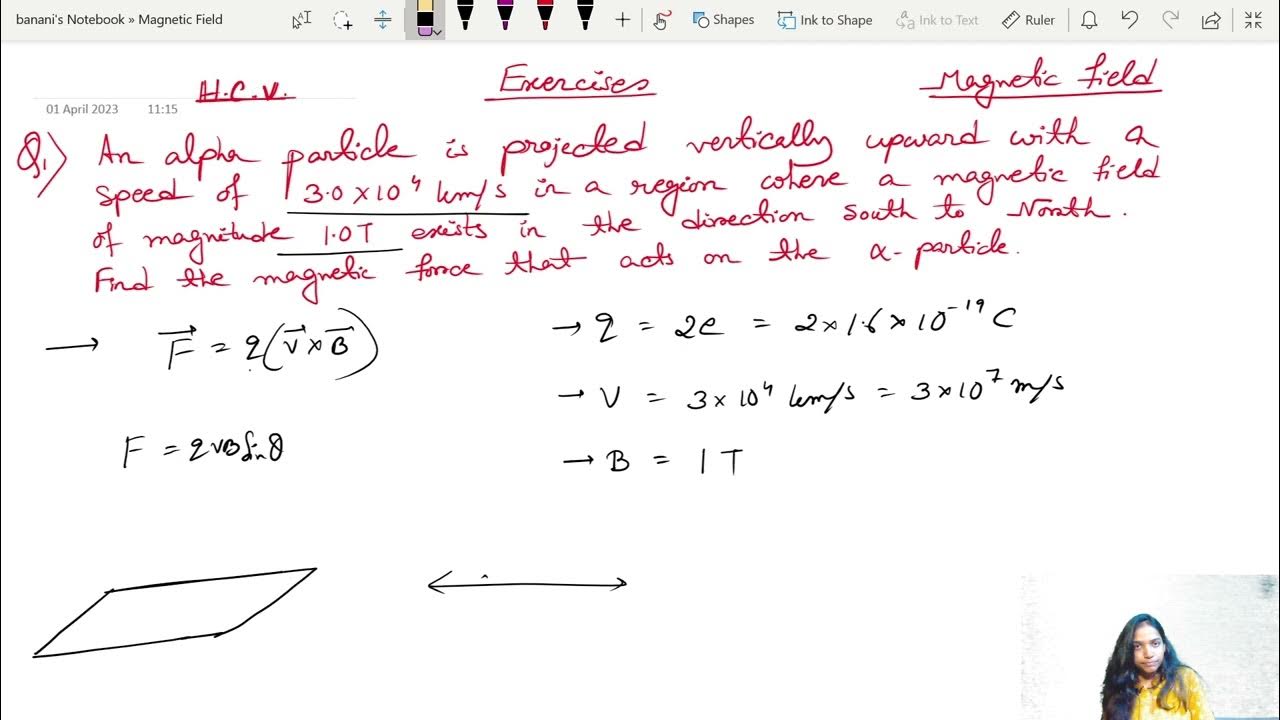 banani's Notebook » Magnetic Field
Shapes
Ink to Shape
Ink to Text
Ruler
H.C.V. Exercises Magnetic Field
01 April 2023 11:15
Q1) An alpha particle is projected vertically upward with a
speed of 3.0 × 10⁴ km/s in a region where a magnetic field
of magnitude 1.0T exists in the direction south to North.
Find the magnetic force that acts on the α-particle.
→ F⃗ = q(v⃗ × B⃗)
→ q = 2e = 2 × 1.6 × 10⁻¹⁹ C
→ V = 3 × 10⁴ km/s = 3 × 10⁷ m/s
F = qvB Sin θ
→ B = 1 T